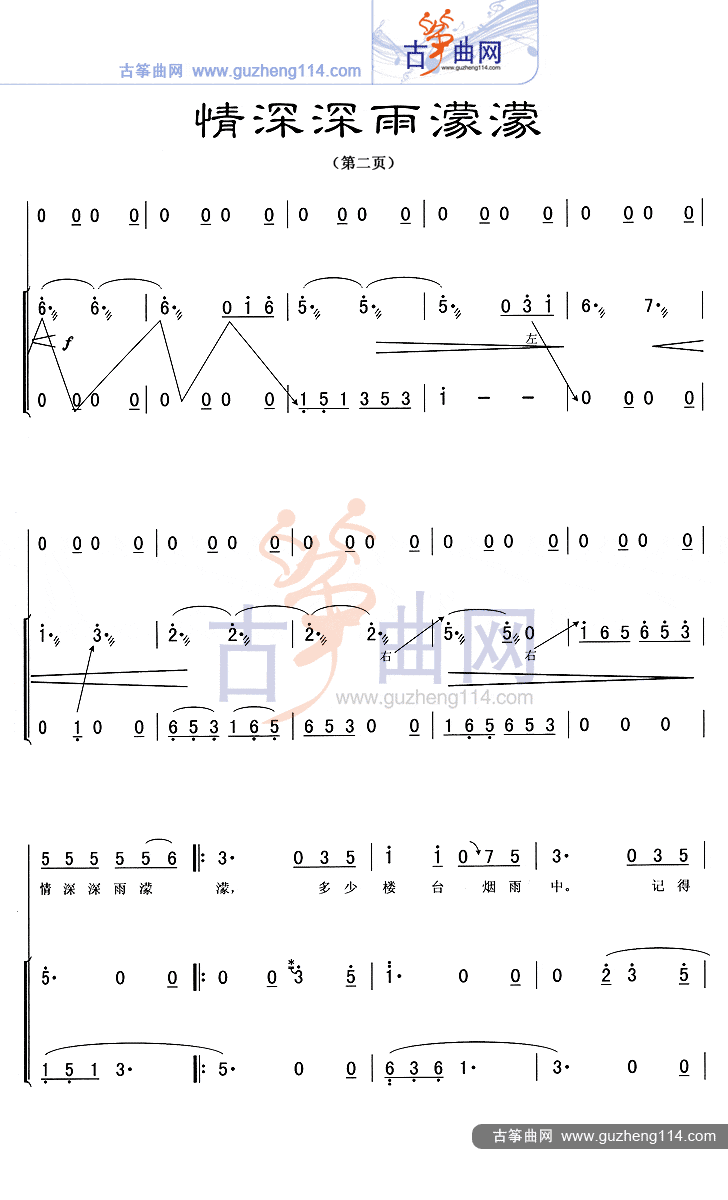 古筝曲网 www.guzheng114.com
古筝曲网
www.guzheng114.com
情深深雨濛濛
（第二页）
0 0 0 0 | 0 0 0 0 | 0 0 0 0 | 0 0 0 0 | 0 0 0 0 |
6· 6· | 6· 0 1 6 | 5· 5· | 5· 0 3 1 | 6· 7· |
f
左
0 0 0 0 | 0 0 0 0 | 1 5 1 3 5 3 | i - - | 0 0 0 0 |
0 0 0 0 | 0 0 0 0 | 0 0 0 0 | 0 0 0 0 | 0 0 0 0 |
1· 3· | 2· 2· | 2· 2· | 5· 5 0 | 1 6 5 6 5 3 |
右 右
古筝曲网
www.guzheng114.com
0 1 0 0 | 6 5 3 1 6 5 | 6 5 3 0 0 | 1 6 5 6 5 3 | 0 0 0 |
5 5 5 5 5 6 |: 3· 0 3 5 | i i 0 7 5 | 3· 0 3 5 |
情 深 深 雨 濛 濛， 多 少 楼 台 烟 雨 中。 记 得
5· 0 0 |: 0 0 3 5 | i· 0 0 | 0 2 3 5 |
1 5 1 3· |: 5· 0 0 | 6 3 6 1· | 3· 0 0 |
古筝曲网 www.guzheng114.com